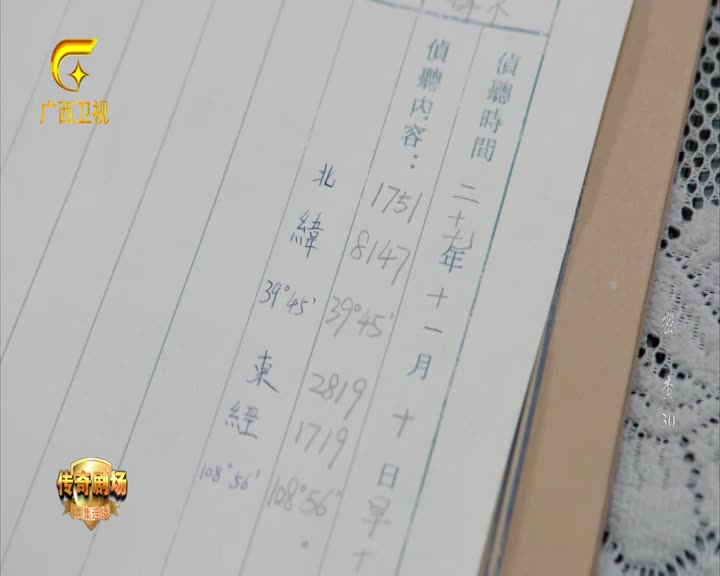 广西卫视
偵聽時間 二十七年十一月十日早十
偵聽内容： 1751 8147 39°45′ 2819 1719 108°56′.
北緯 39°45′ 東經 108°56′
密查 30
传奇剧场